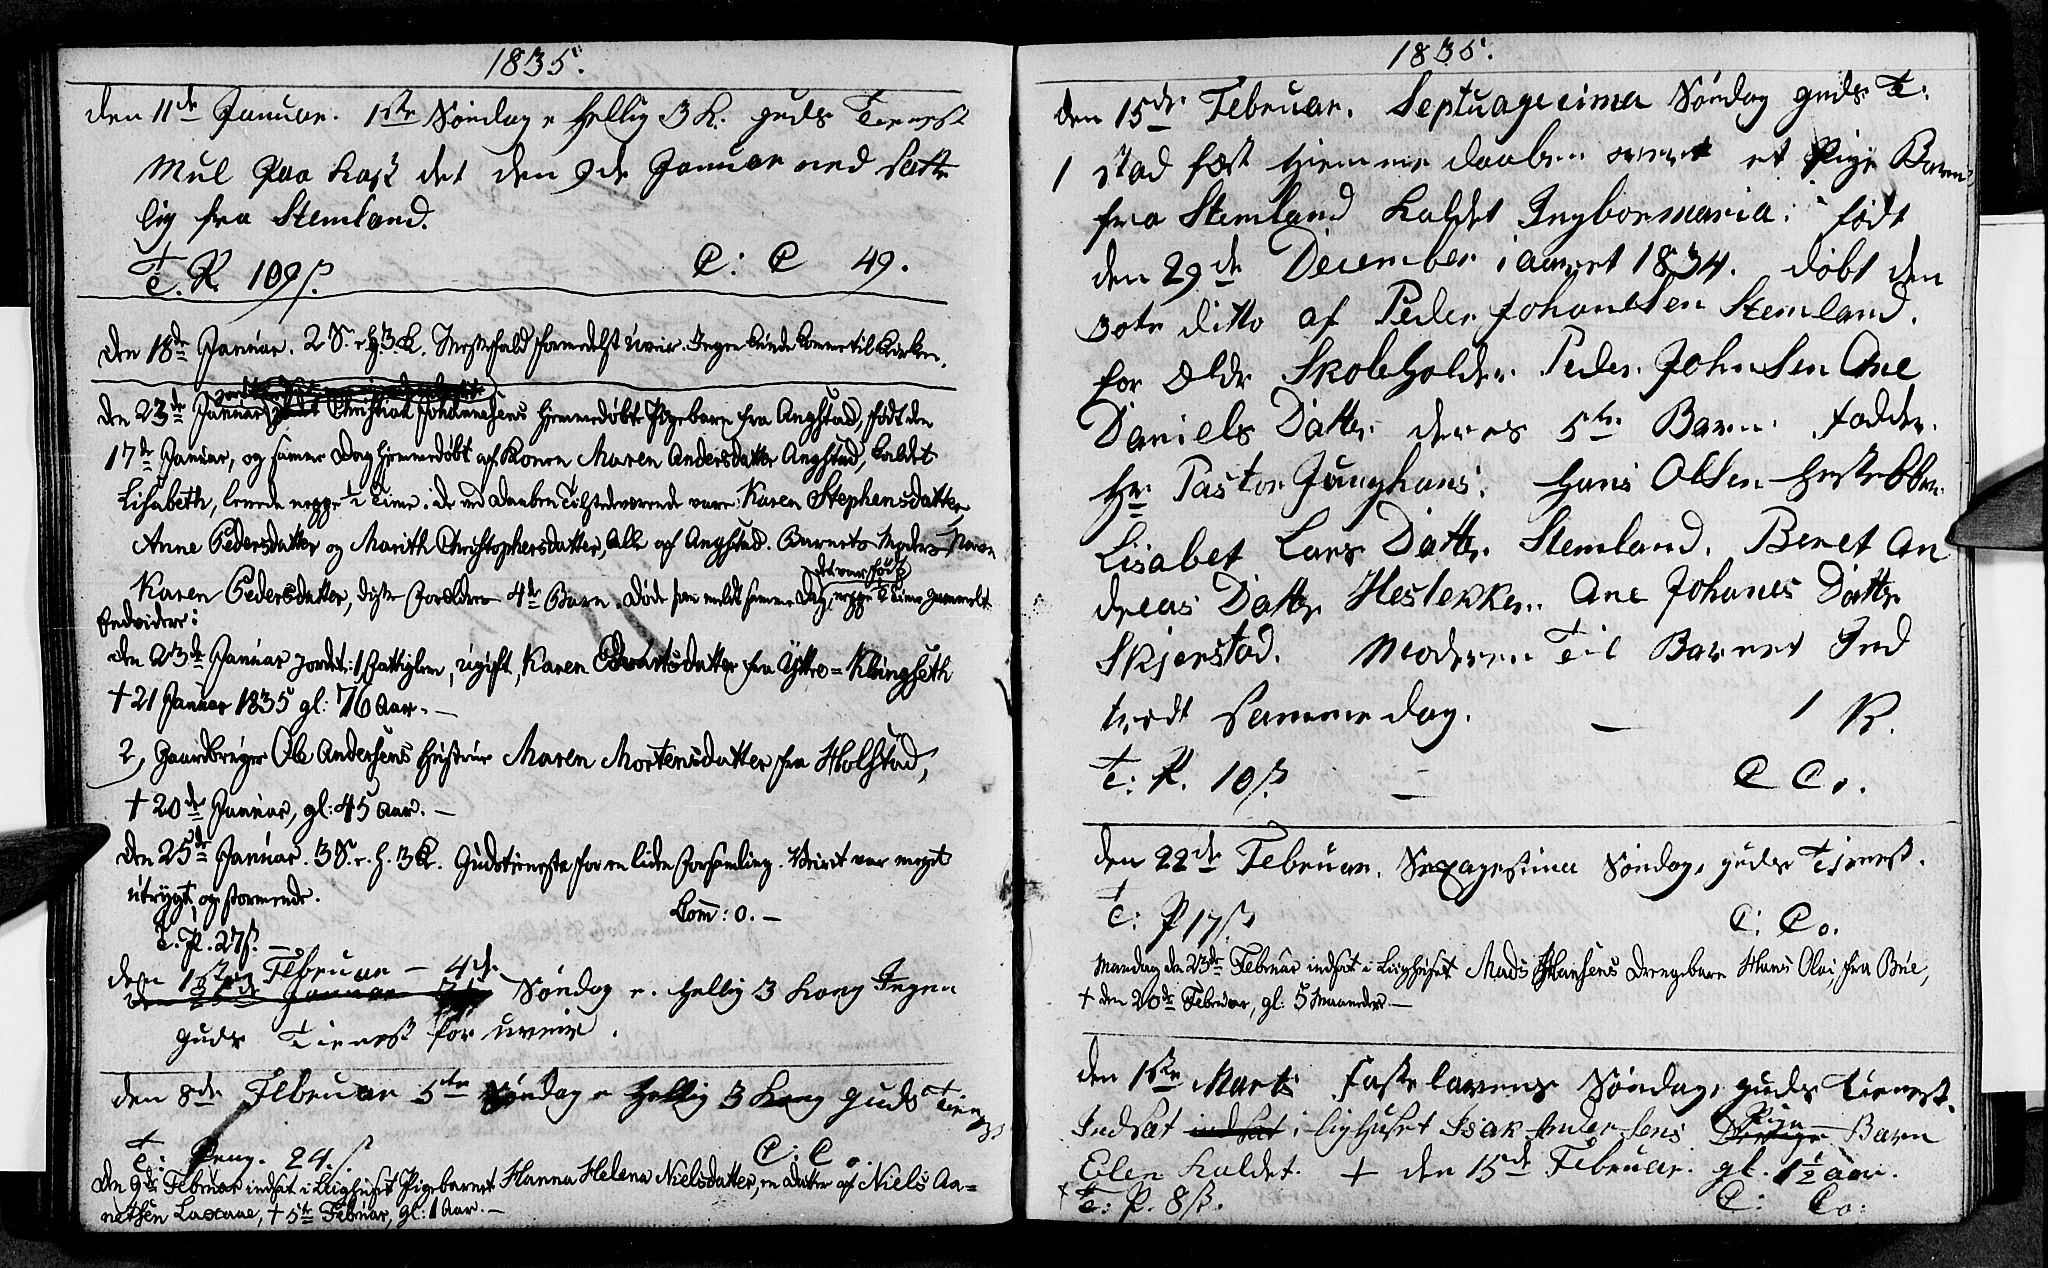 1835.
den 11de Januar. 1ste Søndag e Hellig 3 K. guds Tienest
Mul Paa Kast det den 9de Januar ned satte
lig fra Stemland.
T. P. 109 ß. C: C 49.
den 18de Januar. 2 S. e. H. 3. K. Messefald formedelst Uveir. Ingen kunde komme til Kirken.
den 23de Januar Christian Johannesens hjemmedøbt Pigebarn fra Angstad, født den
17de Januar, og samme Dag hjemmedøbt af Konen Maren Andersdatter Angstad, kaldet
Lisabeth, levede neppe ½ Time. de ved Daaben Tilstedeværende vare: Karen Stephensdatter,
Anne Pedersdatter og Marith Christophersdatter, Alle af Angstad. Barnets Moders Navn
Karen Pedersdatter, disse Forældres 4de Barn. Døde som meldt samme Dag, det var født neppe ½ Time gammelt.
Endvidere:
den 23de Januar jordet: 1, Fattiglem, ugift, Karen Edvartsdatter fra Yttre-Klingseth
† 21 Januar 1835 gl: 76 Aar. —
2, Gaardbruger Ole Andersens Hustrue Maren Mortensdatter fra Holstad,
† 20de Januar, gl: 45 Aar. —
Den 25de Januar. 3 S. e. H. 3 K. Gudstieneste for en liden Forsamling. Veiret var meget
utrygt, og stormende. Com: 0. —
T. P. 27 ß. —
den 1ste Februar — 4de
den 25de Januar Søndag e. Hellig 3 Kong Ingen
guds Tienest for uveir.
den 8de Februar 5te Søndag e Hellig 3 Kong Guds Tienest
T: Peng. 24. ß C: C o.
Den 9de Februar indsat i Liighuset Pigebarnet Hanna Helena Nielsdatter, en Datter af Niels Aa-
netsen Laxaae, † 5te Februar, gl: 1 Aar. —
1835.
den 15de Februar. Septuagecima Søndag guds T:
1 stad fæst Hiemme daaben over et Pige Barn
fra Stemland kaldet Ingbormaria. født
den 29de December i aaret 1834. døbt den
30te ditto af Peder Johansen Stemland.
for Eldr Skoleholder Peder JohnSen Ane
Daniels Datter deres 5te Barn. fadder.
Hr. Pastor Junghans. Hans Olsen Hestekken.
Lisabet Lars Datter Stemland. Beret An
dreas Datter Hestekken. Ane Johanes Datter
Skjerstad. Moderen Til Barnet Ind
ledt samme dag. — 1 K.
T: P. 10 ß. — C C o.
den 22de Februar. Sexagesima Søndag, guds Tienest.
T: P 17 ß C: C o.
Mandag den 23de Februar indsat i Liighuset Mads Hansens Drengebarn Hans Olai, fra Bue,
† den 20de Februar, gl: 5 Maaneder. —
den 1ste Marts Fastelavens Søndag, guds Tienest.
Indsat indsat i lighuset Isak Andersens Drenge Pige Barn
Elen kaldet. † den 15de Februar. gl. 1½ aar.
T: P. 8 ß. C: C o: